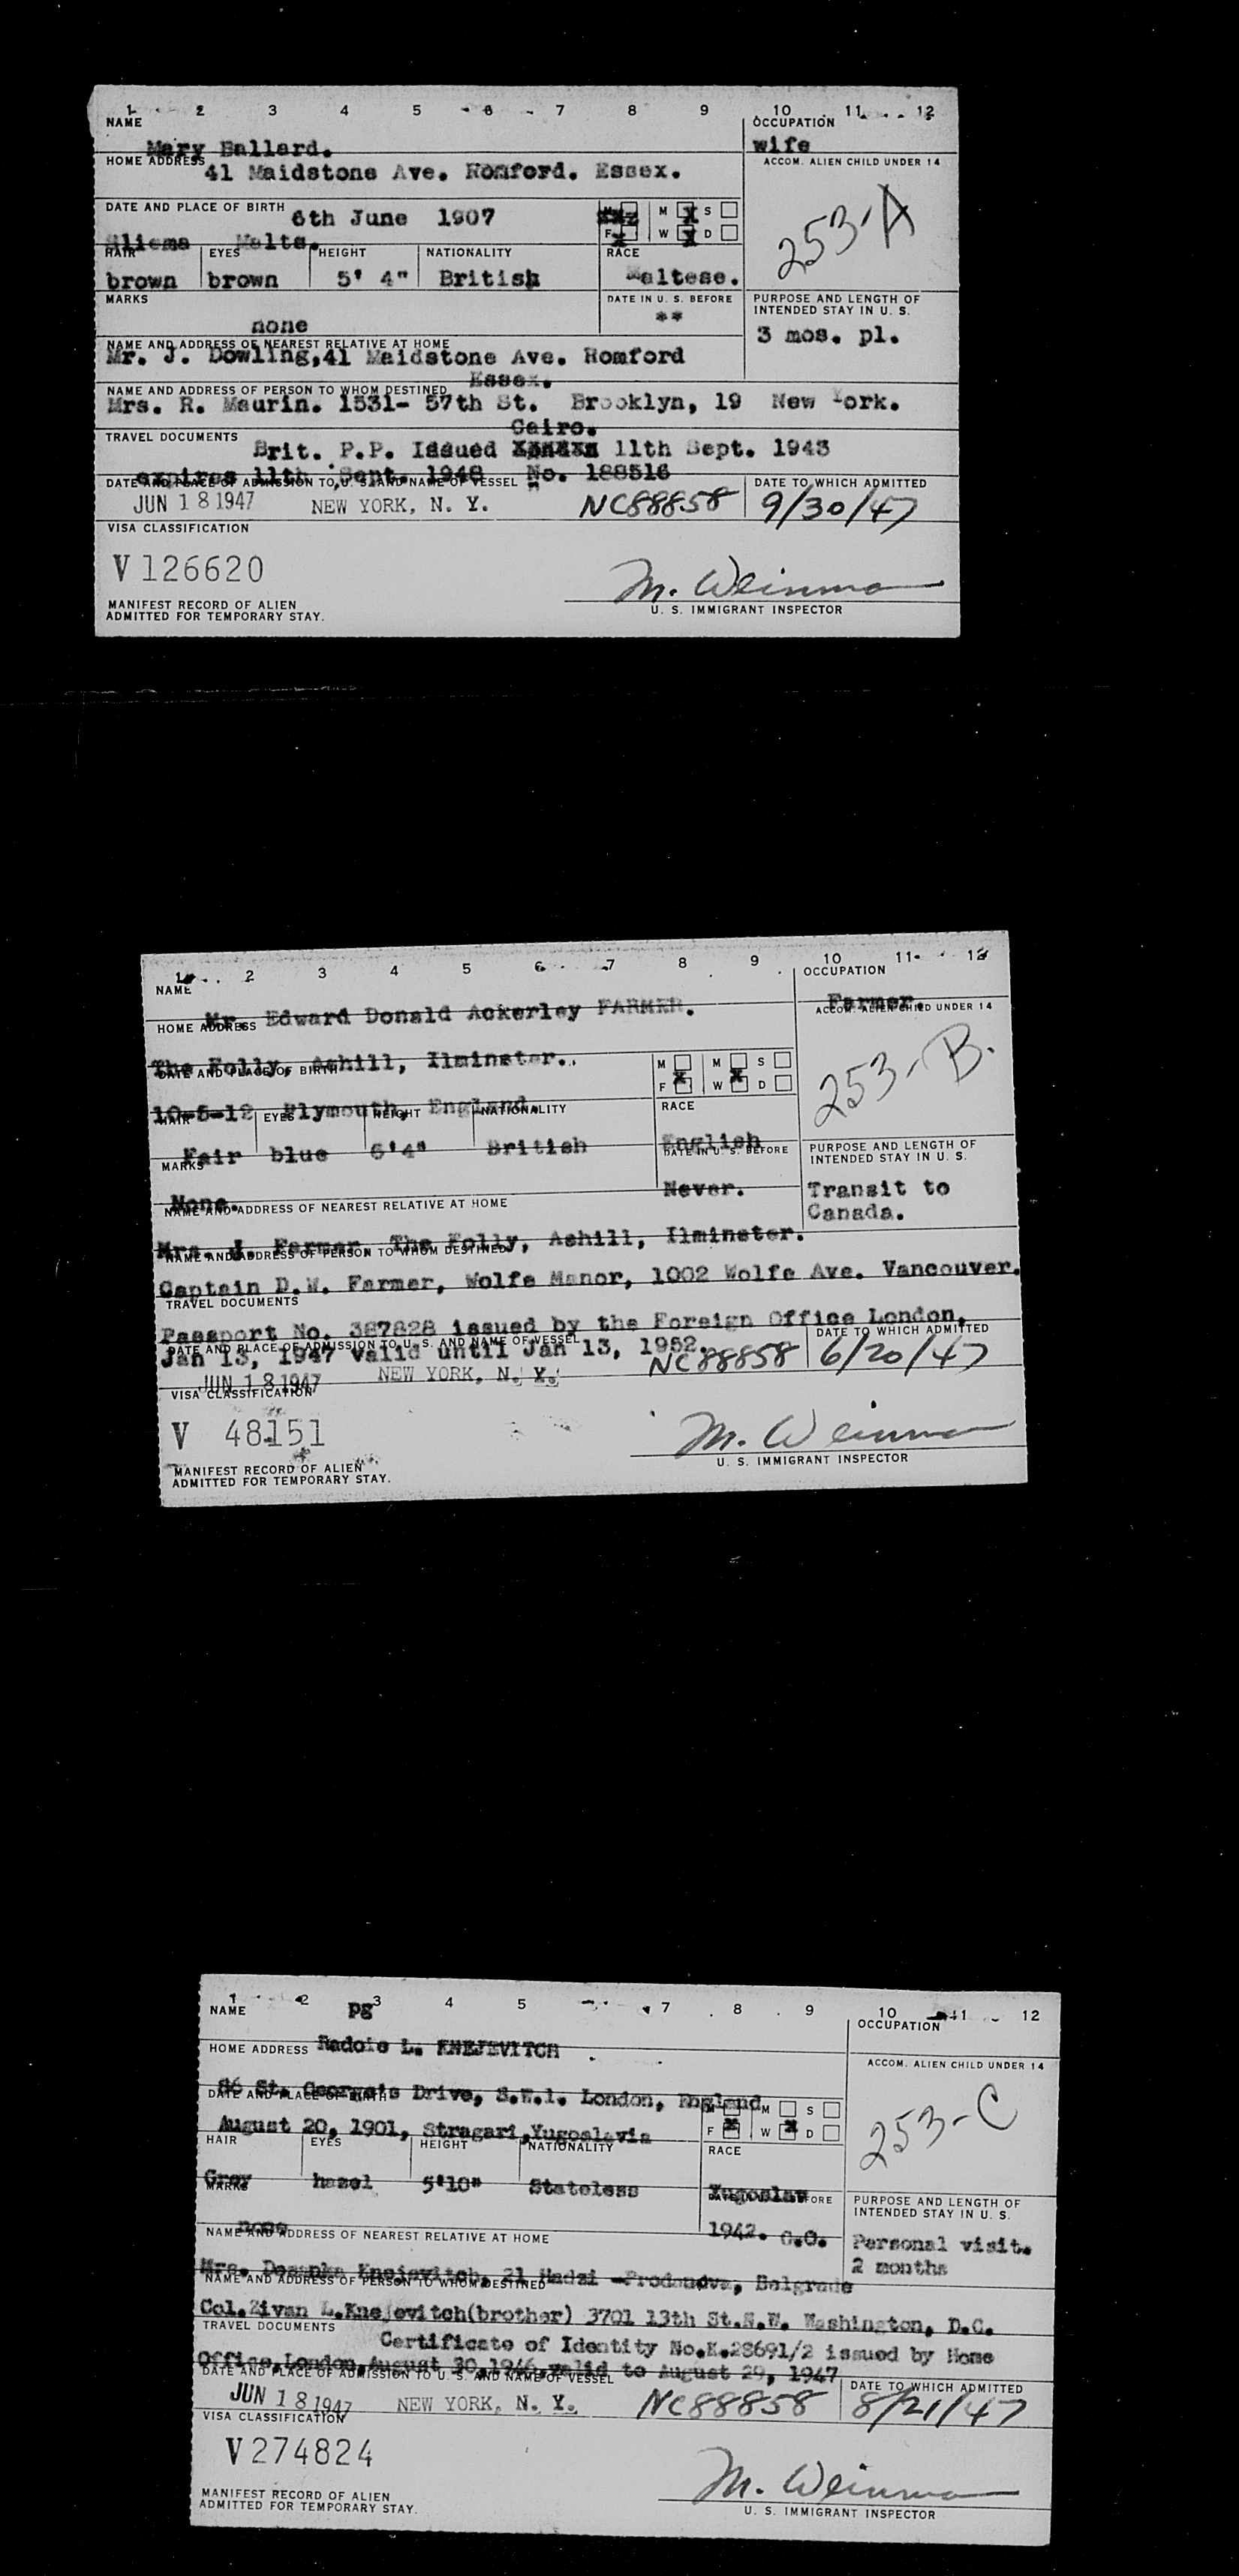 1 2 3 4 5 6 7 8 9 10 11 12
NAME OCCUPATION
Mary Ballard. wife
HOME ADDRESS ACCOM. ALIEN CHILD UNDER 14
41 Maidstone Ave. Romford. Essex.
253-A
DATE AND PLACE OF BIRTH 6th June 1907 M M X S
F X W X D
Sliema Malta.
HAIR EYES HEIGHT NATIONALITY RACE
brown brown 5' 4" British Maltese.
MARKS DATE IN U. S. BEFORE PURPOSE AND LENGTH OF
INTENDED STAY IN U. S.
none ** 3 mos. pl.
NAME AND ADDRESS OF NEAREST RELATIVE AT HOME
Mr. J. Dowling,41 Maidstone Ave. Romford
Essex.
NAME AND ADDRESS OF PERSON TO WHOM DESTINED
Mrs. R. Maurin. 1531- 57th St. Brooklyn, 19 New York.
Cairo.
TRAVEL DOCUMENTS Brit. P.P. Issued 11th Sept. 1943
expires 11th Sept. 1948 No. 188516
DATE AND PLACE OF ADMISSION TO U. S. AND NAME OF VESSEL DATE TO WHICH ADMITTED
JUN 18 1947 NEW YORK, N. Y. NC88858 9/30/47
VISA CLASSIFICATION
V 126620
M. Weinman
MANIFEST RECORD OF ALIEN U. S. IMMIGRANT INSPECTOR
ADMITTED FOR TEMPORARY STAY.
1 2 3 4 5 6 7 8 9 10 11 12
NAME OCCUPATION
Mr. Edward Donald Ackerley FARMER. Farmer.
HOME ADDRESS ACCOM. ALIEN CHILD UNDER 14
The Folly, Ashill, Ilminster.
253-B.
DATE AND PLACE OF BIRTH M M S
F X W X D
10-5-12 Plymouth, England.
HAIR EYES HEIGHT NATIONALITY RACE
Fair blue 6'4" British English
MARKS DATE IN U. S. BEFORE PURPOSE AND LENGTH OF
INTENDED STAY IN U. S.
None. Never. Transit to
Canada.
NAME AND ADDRESS OF NEAREST RELATIVE AT HOME
Mrs. J. Farmer, The Folly, Ashill, Ilminster.
NAME AND ADDRESS OF PERSON TO WHOM DESTINED
Captain D.W. Farmer, Wolfe Manor, 1002 Wolfe Ave. Vancouver.
TRAVEL DOCUMENTS
Passport No. 387828 issued by the Foreign Office London,
DATE AND PLACE OF ADMISSION TO U. S. AND NAME OF VESSEL DATE TO WHICH ADMITTED
Jan 13, 1947 valid until Jan 13, 1952.
JUN 18 1947 NEW YORK, N. Y. NC88858 6/20/47
VISA CLASSIFICATION
V 48151
M. Weinman
MANIFEST RECORD OF ALIEN U. S. IMMIGRANT INSPECTOR
ADMITTED FOR TEMPORARY STAY.
1 2 3 4 5 7 8 9 10 11 12
NAME pg OCCUPATION
HOME ADDRESS Radoje L. KNEJEVITCH ACCOM. ALIEN CHILD UNDER 14
86 St. George's Drive, S.W.1. London, England
253-C
DATE AND PLACE OF BIRTH M M S
F X W X D
August 20, 1901, Stragari,Yugoslavia
HAIR EYES HEIGHT NATIONALITY RACE
Gray hazel 5'10" Stateless Yugoslav
MARKS DATE IN U. S. BEFORE PURPOSE AND LENGTH OF
INTENDED STAY IN U. S.
none 1942. G.O. Personal visit.
2 months
NAME AND ADDRESS OF NEAREST RELATIVE AT HOME
Mrs. Desanka Knejevitch, 21 Hadzi -Prodanova, Belgrade
NAME AND ADDRESS OF PERSON TO WHOM DESTINED
Col.Zivan L.Knejevitch(brother) 3701 13th St.N.W. Washington, D.C.
TRAVEL DOCUMENTS Certificate of Identity No.K.28691/2 issued by Home
Office,London,August 30,1946,valid to August 29, 1947
DATE AND PLACE OF ADMISSION TO U. S. AND NAME OF VESSEL DATE TO WHICH ADMITTED
JUN 18 1947 NEW YORK, N. Y. NC88858 8/21/47
VISA CLASSIFICATION
V 274824
M. Weinman
MANIFEST RECORD OF ALIEN U. S. IMMIGRANT INSPECTOR
ADMITTED FOR TEMPORARY STAY.